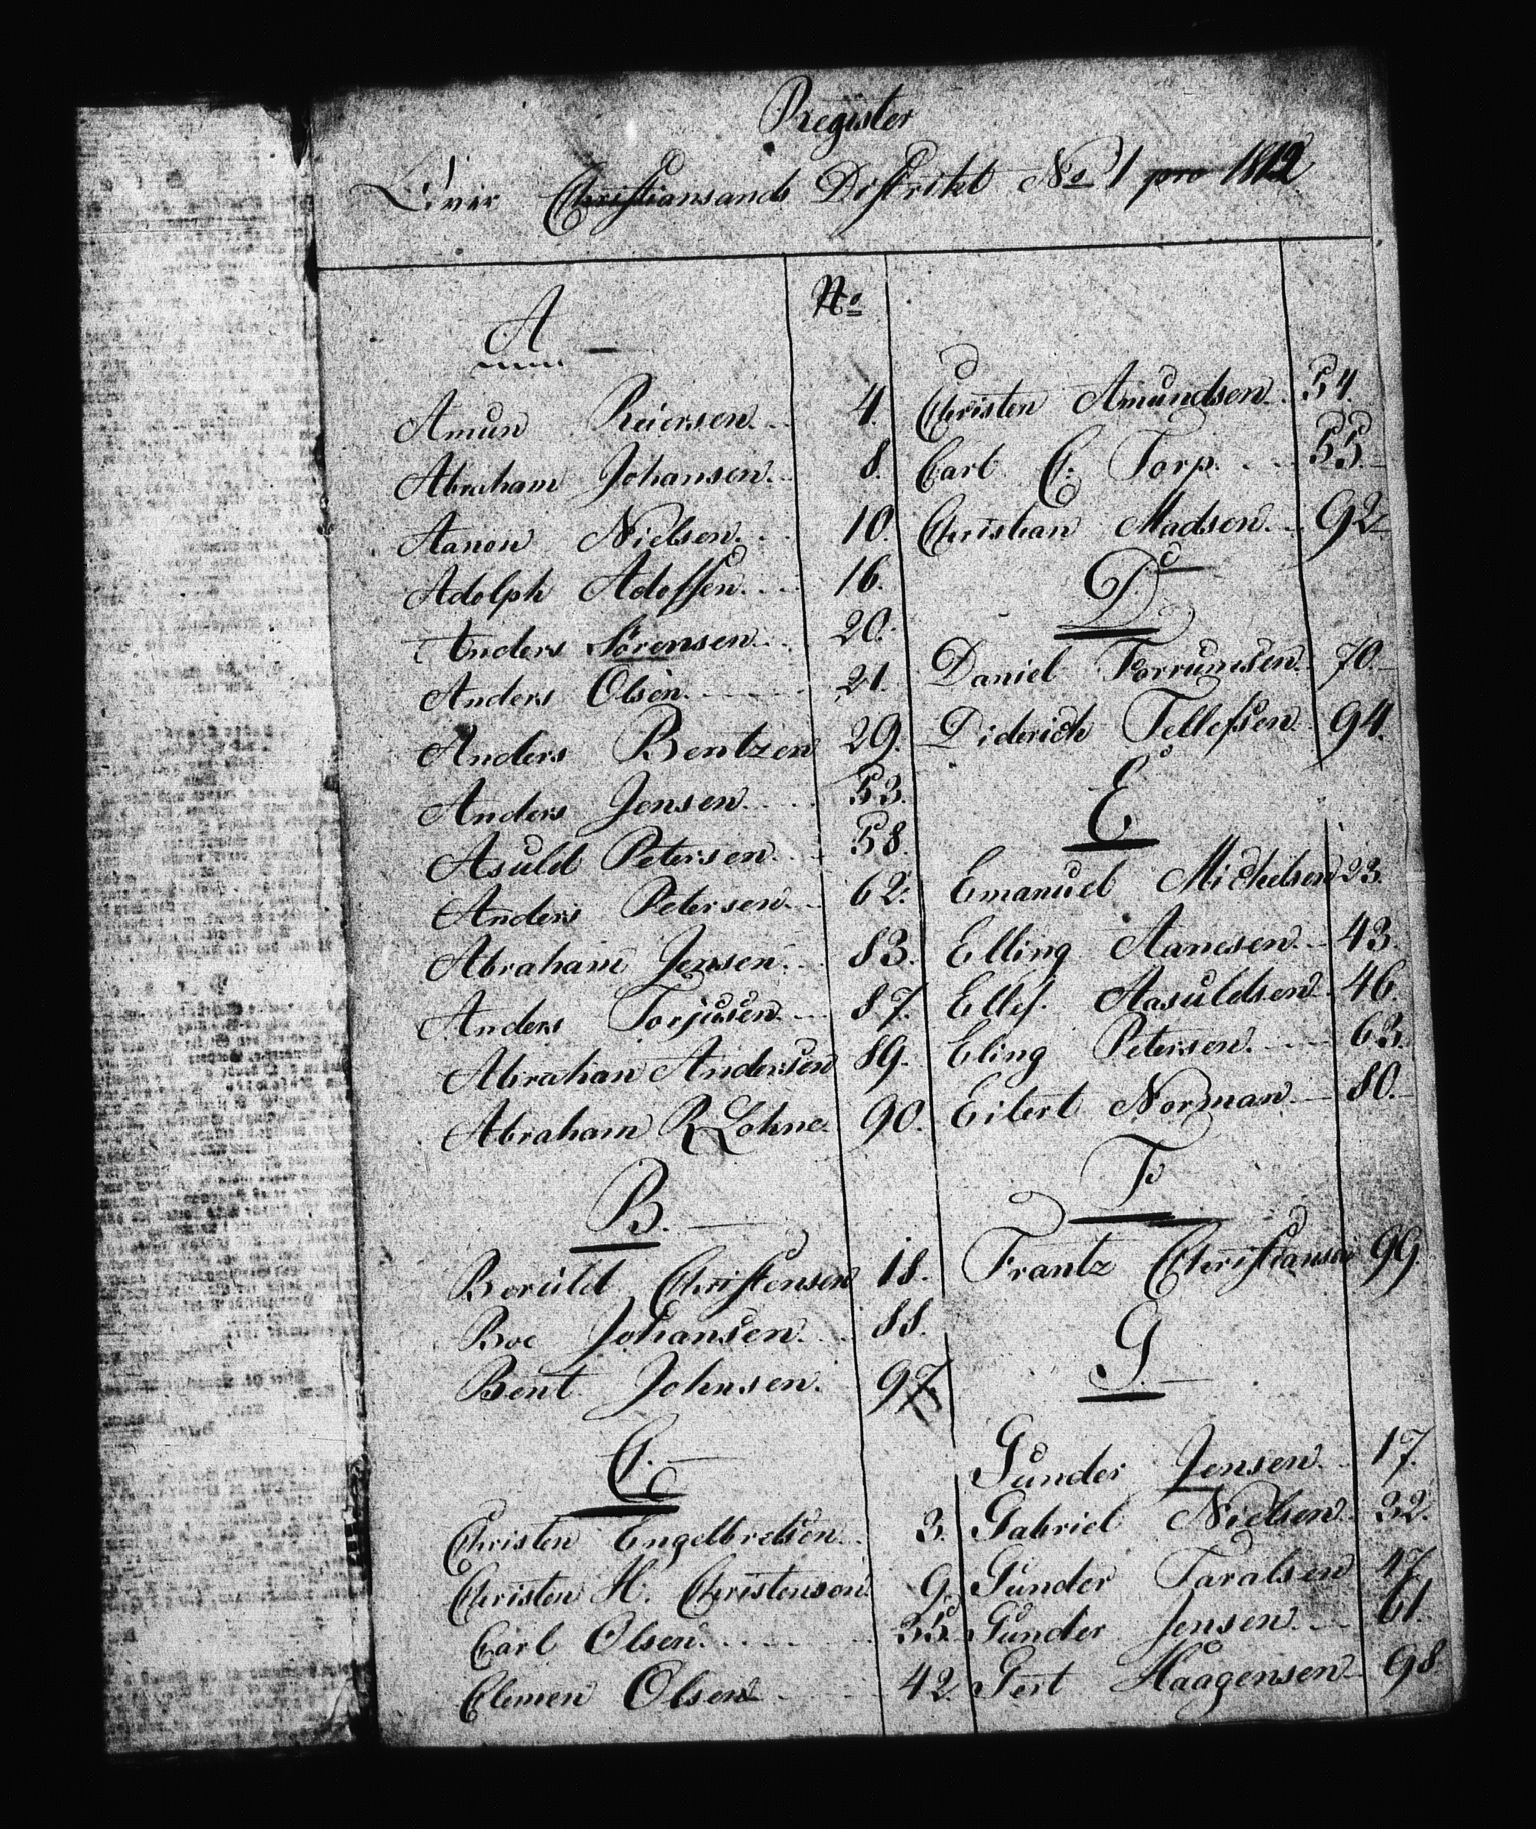 Register
Over Christiansands Distrikt No 1 pro 1812
A
No
Amun Reiersen 4.
Abraham Johansen 8.
Aanon Nielsen 10.
Adolph Adolfsen 16.
Anders Sörensen 20.
Anders Olsen 21.
Anders Bentzen 29.
Anders Jensen 53.
Asuld Petersen 58.
Anders Petersen 62.
Abraham Jensen 83.
Anders Torjusen 87.
Abrahan Andersen 89.
Abraham R Lohne 90.
B.
Boruld Christensen 18.
Boe Johansen 88.
Bent Johnsen. 97.
C.
Christen Engelbretsen 3.
Christen H. Christensen 9.
Carl Olsen 35.
Clemen Olsen 42.
Christen Amundsen 54.
Carl C. Torp 55.
Christian Madsen 92
D
Daniel 70.
Diderich Tellefsen 94.
E
Emanuel Michelsen 23.
Elling Aanesen 43.
Ellef Aasuldsen 46.
Eling Petersen 63.
Eilert Norman 80.
F
Frantz Christiansen 99.
G.
Gunder Jensen 17.
Gabriel Nielsen 32.
Gunder Taralsen 47.
Gunder Jensen 61.
Gert Haagensen 98